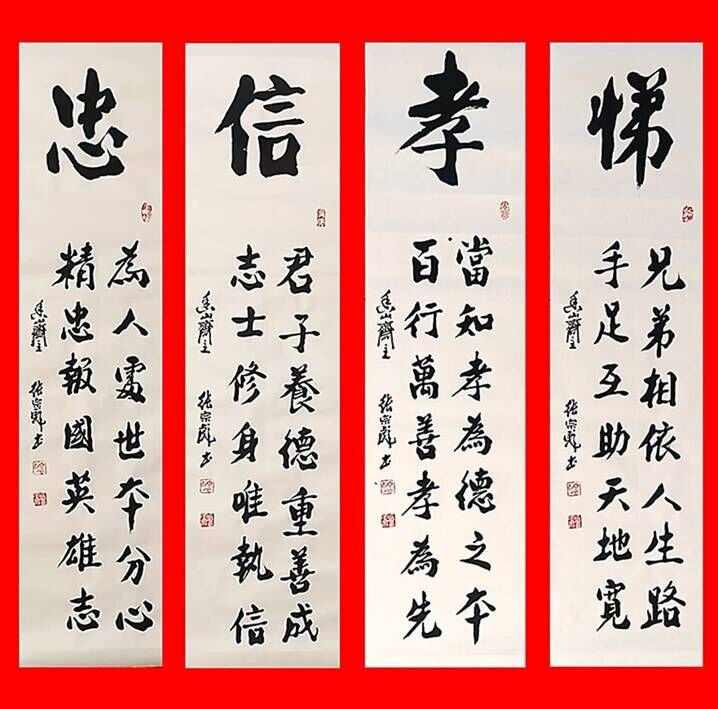 悌
兄弟相依人生路
手足互助天地寬
山齋主 张宗彪书
孝
當知孝為德之本
百行萬善孝為先
山齋主 张宗彪书
信
君子養德重善成
志士修身唯執信
山齋主 张宗彪书
忠
為人處世本分心
精忠報國英雄志
山齋主 张宗彪书